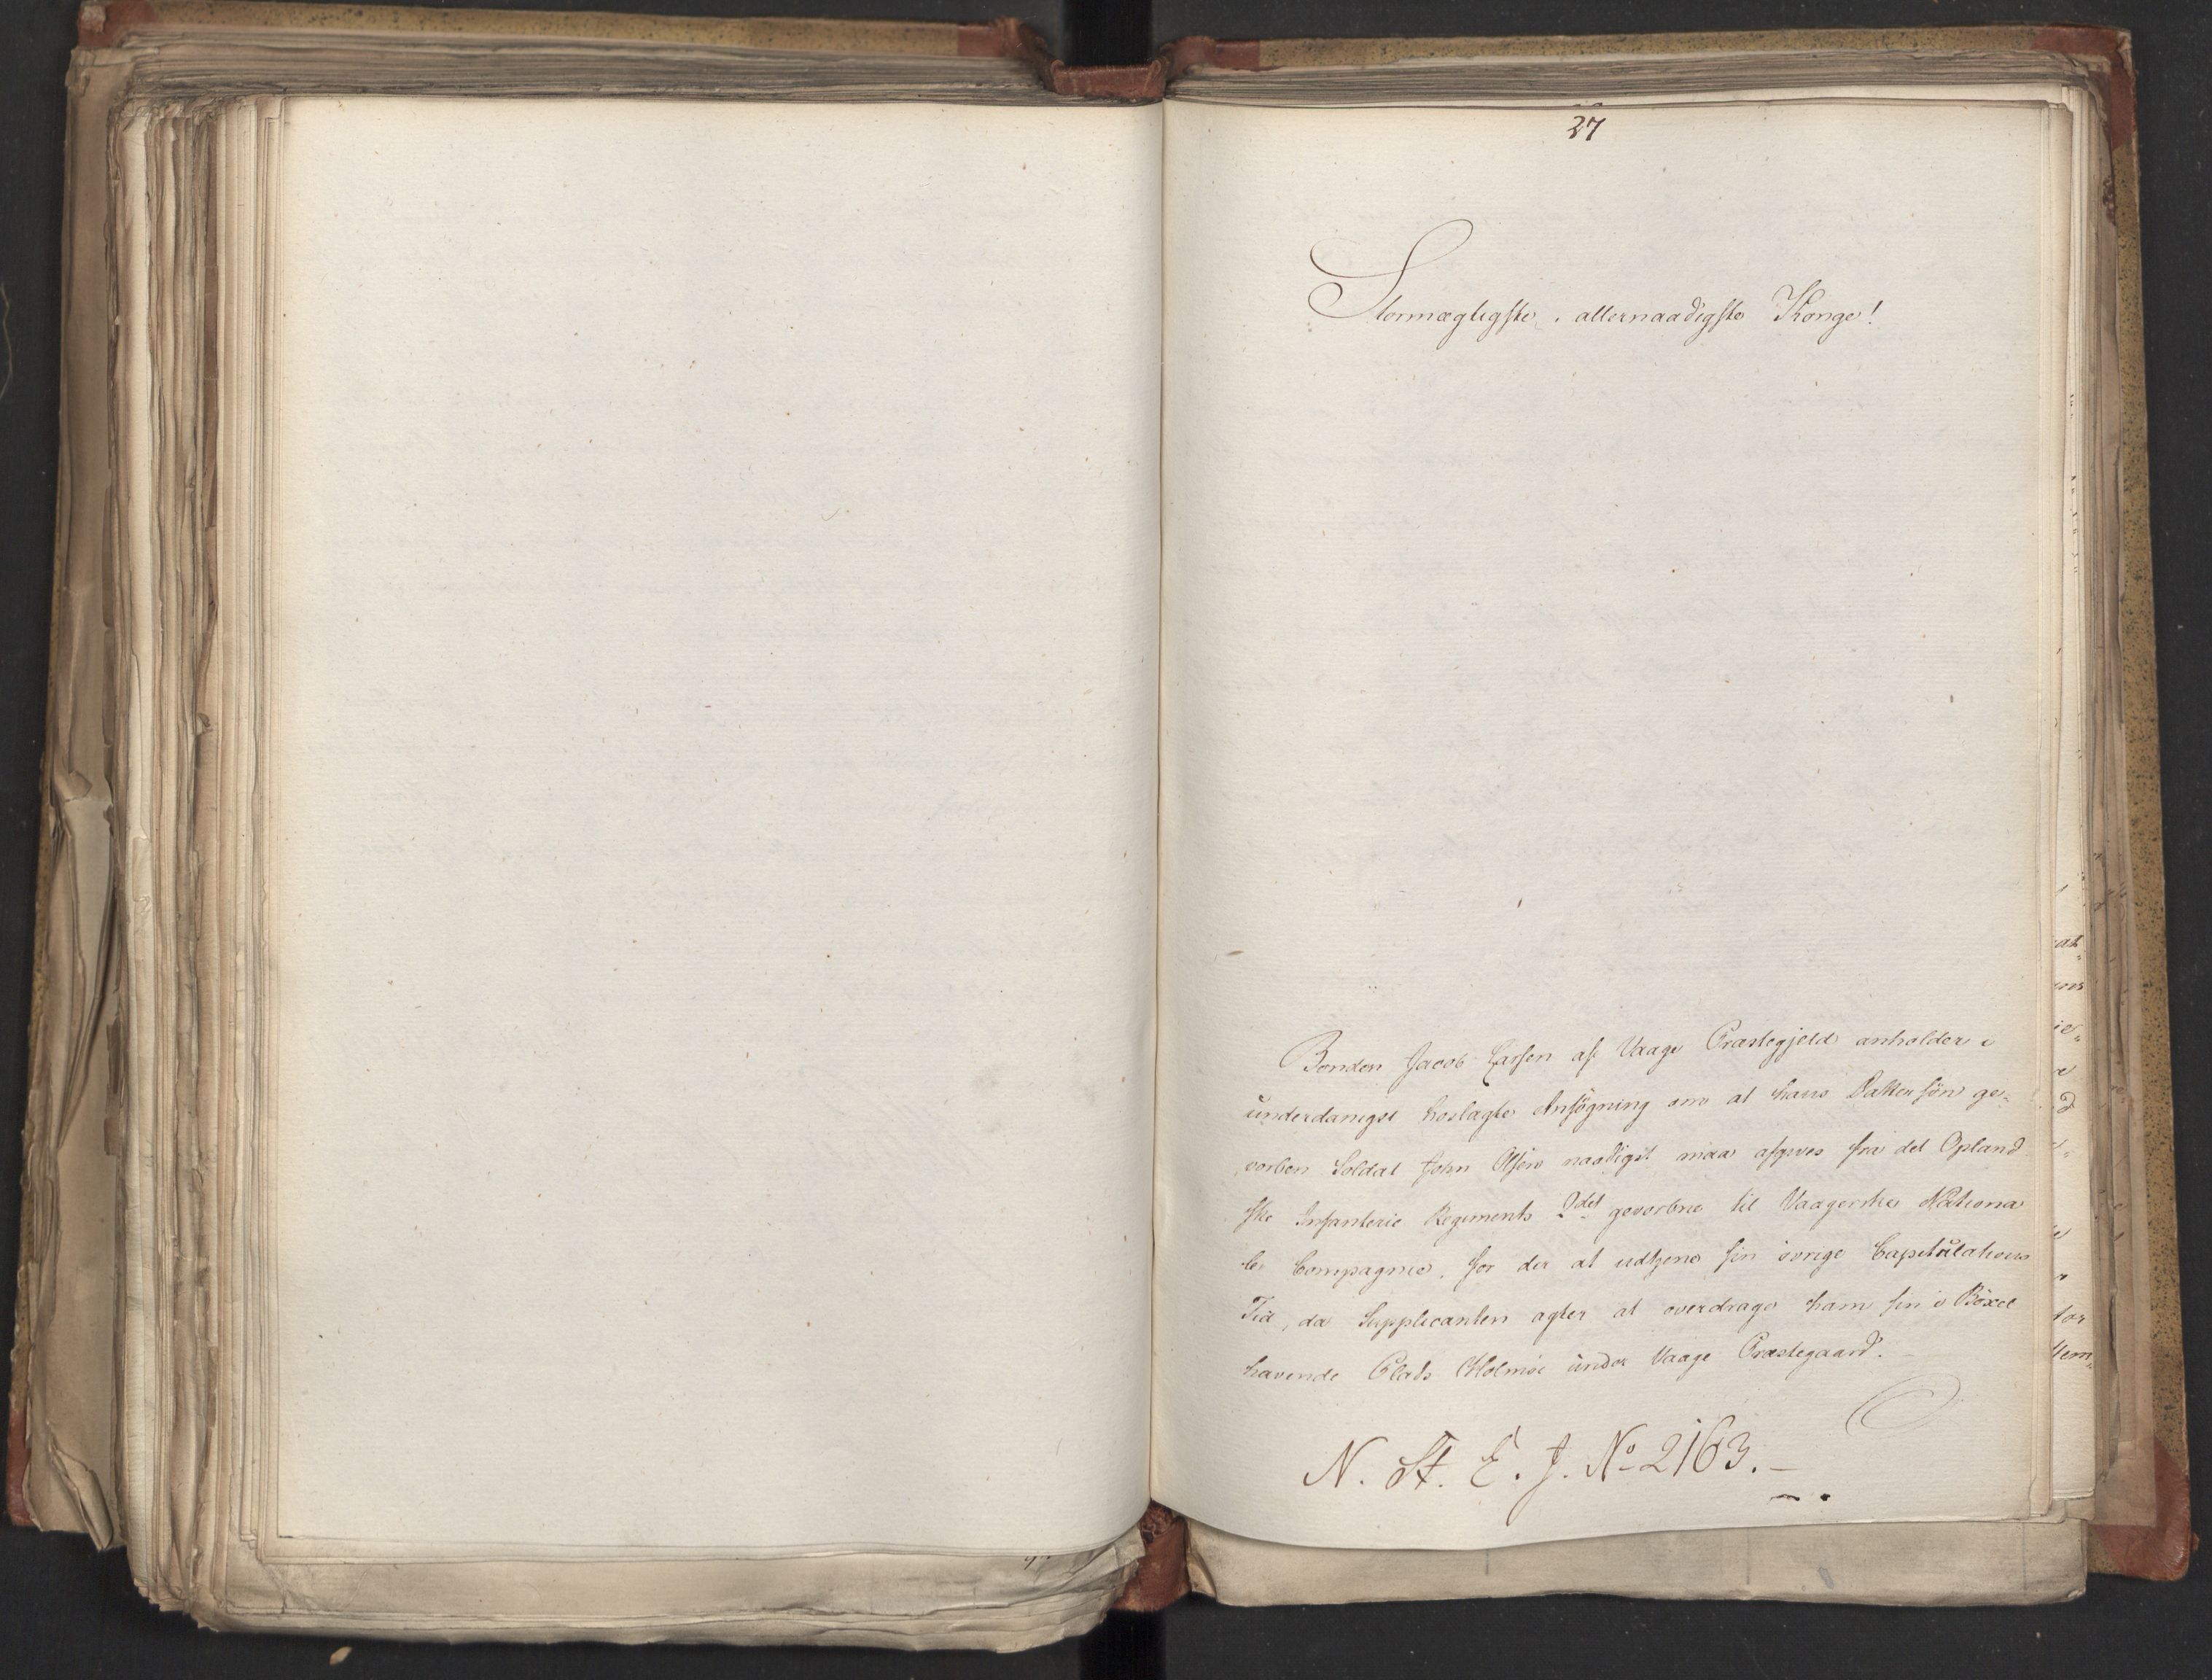 27
Stormægtigste, allernaadigste Konge!
Bonden Jacob Larsen af Vaage Præstegjeld anholder i
underdanigst hoslagte Ansögning om at hans Dattersön ge-
vorben Soldat John Olsen naadigst maa afgives fra det Opland
ske Infanterie Regiments 2det gevorbne til Vaagerske Nationa
le Compagnie, for der at udtjene sin övrige Capitulations
Tid, da Supplicanten agter at overdrage ham sin i Böxel
havende Plads Holmöe under Vaage Præstegaard.
N. St. E. J. No 2163.